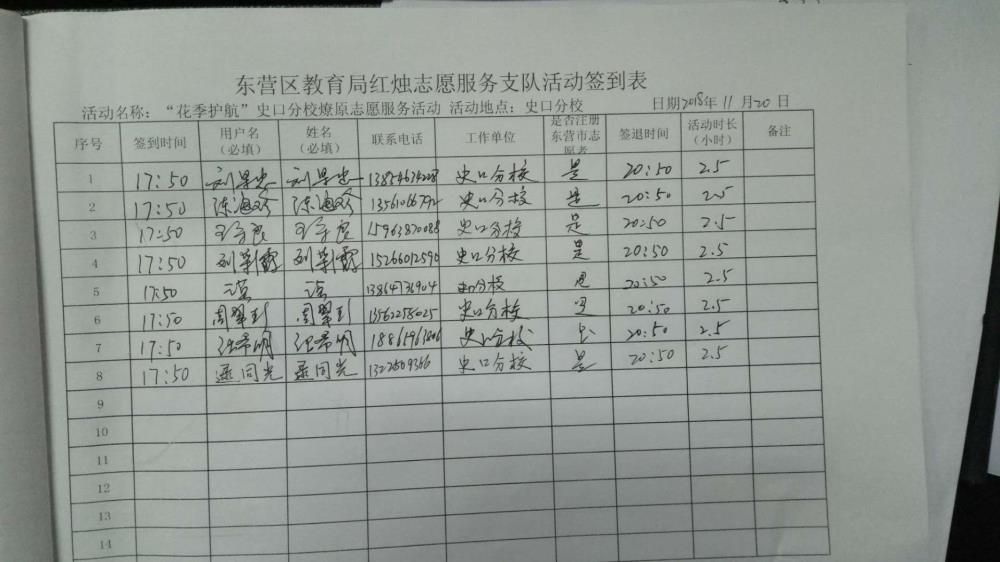 东营区教育局红烛志愿服务支队活动签到表
活动名称：“花季护航”史口分校燎原志愿服务活动 活动地点：史口分校 日期2018年 11 月20 日
序号 签到时间 用户名（必填） 姓名（必填） 联系电话 工作单位 是否注册东营市志愿者 签退时间 活动时长（小时） 备注
1 17:50 史口分校 是 20:50 2.5
2 17:50 史口分校 是 20:50 2.5
3 17:50 15963870088 史口分校 是 20:50 2.5
4 17:50 15266012590 史口分校 是 20:50 2.5
5 17:50 13864736904 史口分校 是 20:50 2.5
6 17:50 13562258025 史口分校 是 20:50 2.5
7 17:50 张希明 张希明 史口分校 是 20:50 2.5
8 17:50 史口分校 是 20:50 2.5
9
10
11
12
13
14